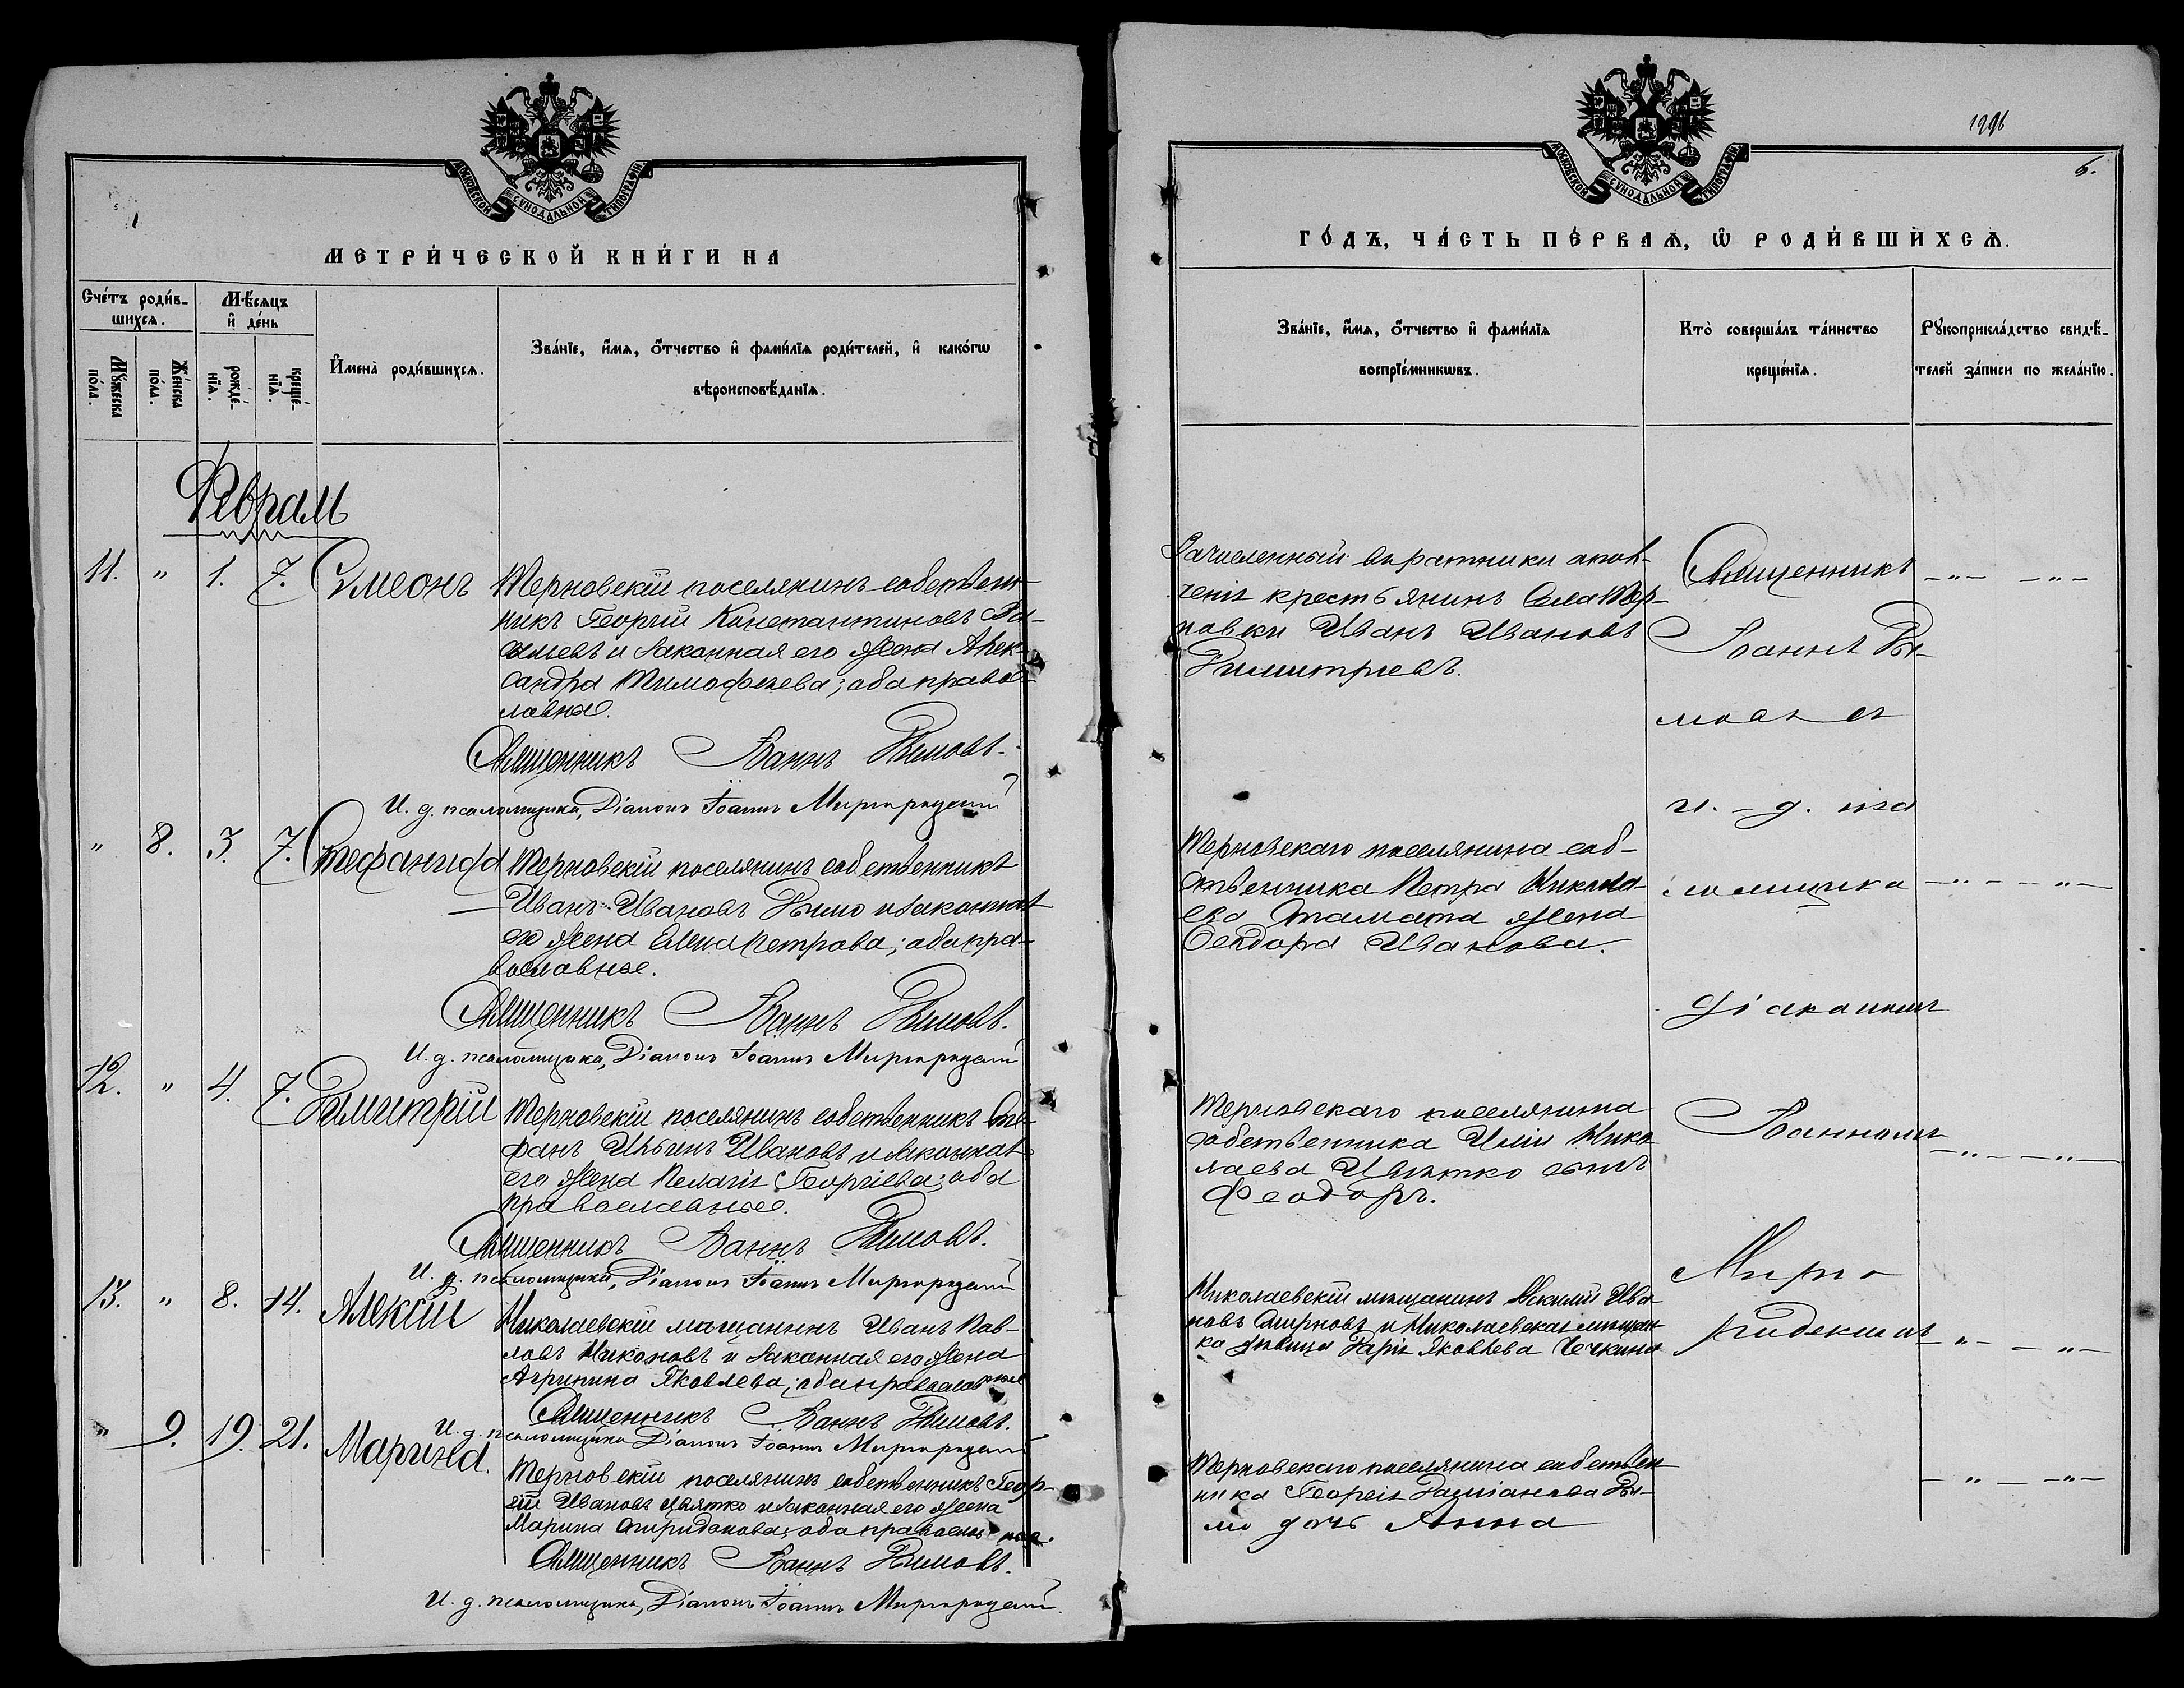 МОСКОВСКОЙ СѴНОДАЛЬНОЙ ТИПОГРАФІИ
МЕТРИ́ЧЕСКОЙ КНИ́ГИ НА
Сче́тъ роди́в-
шихсѧ.
Мѣ́сѧцъ
и҆ де́нь
Мꙋ́жеска
по́ла.
Же́нска
по́ла.
рожде́-
нїѧ.
креще́-
нїѧ.
И҆мена̀ роди́вшихсѧ.
Зва́нїе, и҆́мѧ, ѻ҆́тчество и҆ фами́лїѧ роди́телей, и҆ како́гѡ
вѣроисповѣ́данїѧ.
Февраль
11. " 1. 7. Сѵмеонъ Терновскій поселянинъ собствен-
никъ Георгій Константиновъ
и законная его жена Алек-
сандра Тимофеева; оба правос-
лавные.
Священникъ Іоаннъ Дымовъ.
И. д. псаломщика, Діаконъ Іоаннъ
" 8. 3. 7. Стефанида Терновскій поселянинъ собственникъ
Иванъ Ивановъ Дымо и законная
его жена Елена Петрова; оба пра-
вославные.
Священникъ Іоаннъ Дымовъ.
И. д. псаломщика, Діаконъ Іоаннъ
12. " 4. 7. Димитрій Терновскій поселянинъ собственникъ Сте-
фанъ Ивановъ и законная
его жена Пелагія Георгіева; оба
православные.
Священникъ Іоаннъ Дымовъ.
И. д. псаломщика, Діаконъ Іоаннъ
13. " 8. 14. Алексій Николаевскій мѣщанинъ Иванъ Пав-
ловъ Никоновъ и законная его жена
Агрипина Яковлева; оба православные
Священникъ Іоаннъ Дымовъ.
И. д. псаломщика Діаконъ Іоаннъ
" 9. 19. 21. Марина. Терновскій поселянинъ собственникъ Геор-
гій Ивановъ Цвятко и законная его жена
Марина Спиридонова; оба православные.
Священникъ Іоаннъ Дымовъ.
И. д. псаломщика, Діаконъ Іоаннъ
1296
6.
МОСКОВСКОЙ СѴНОДАЛЬНОЙ ТИПОГРАФІИ
ГО́ДЪ, ЧА́СТЬ ПЕ́РВАѦ, Ѡ҆ РОДИ́ВШИХСѦ.
Зва́нїе, и҆́мѧ, ѻ҆́тчество и҆ фами́лїѧ
воспрїе́мникѡвъ.
Кто̀ соверша́лъ та́инство
креще́нїѧ.
Рꙋкоприкла́дство свидѣ́-
телей за́писи по жела́нїю.
Зачисленный въ ратники опол-
ченія крестьянинъ села Тер-
новки Иванъ Ивановъ
Димитріевъ.
Священникъ
Іоаннъ Ды-
мовъ съ
и. д. пса
Терновскаго поселянина соб-
ственника Петра Никола-
ева Стамата жена
Феодора Иванова.
ломщика
діакономъ
Терновскаго поселянина
собственника Иліи Нико-
лаева Цвятко сынъ
Феодоръ.
Іоанномъ
Николаевскій мѣщанинъ Ива-
новъ Смирновъ и Николаевская мѣщан-
ка дѣвица Дарія Яковлева Чечкина
Терновскаго поселянина собствен-
ника Георгія Даміанова Ды-
мо дочь Анна